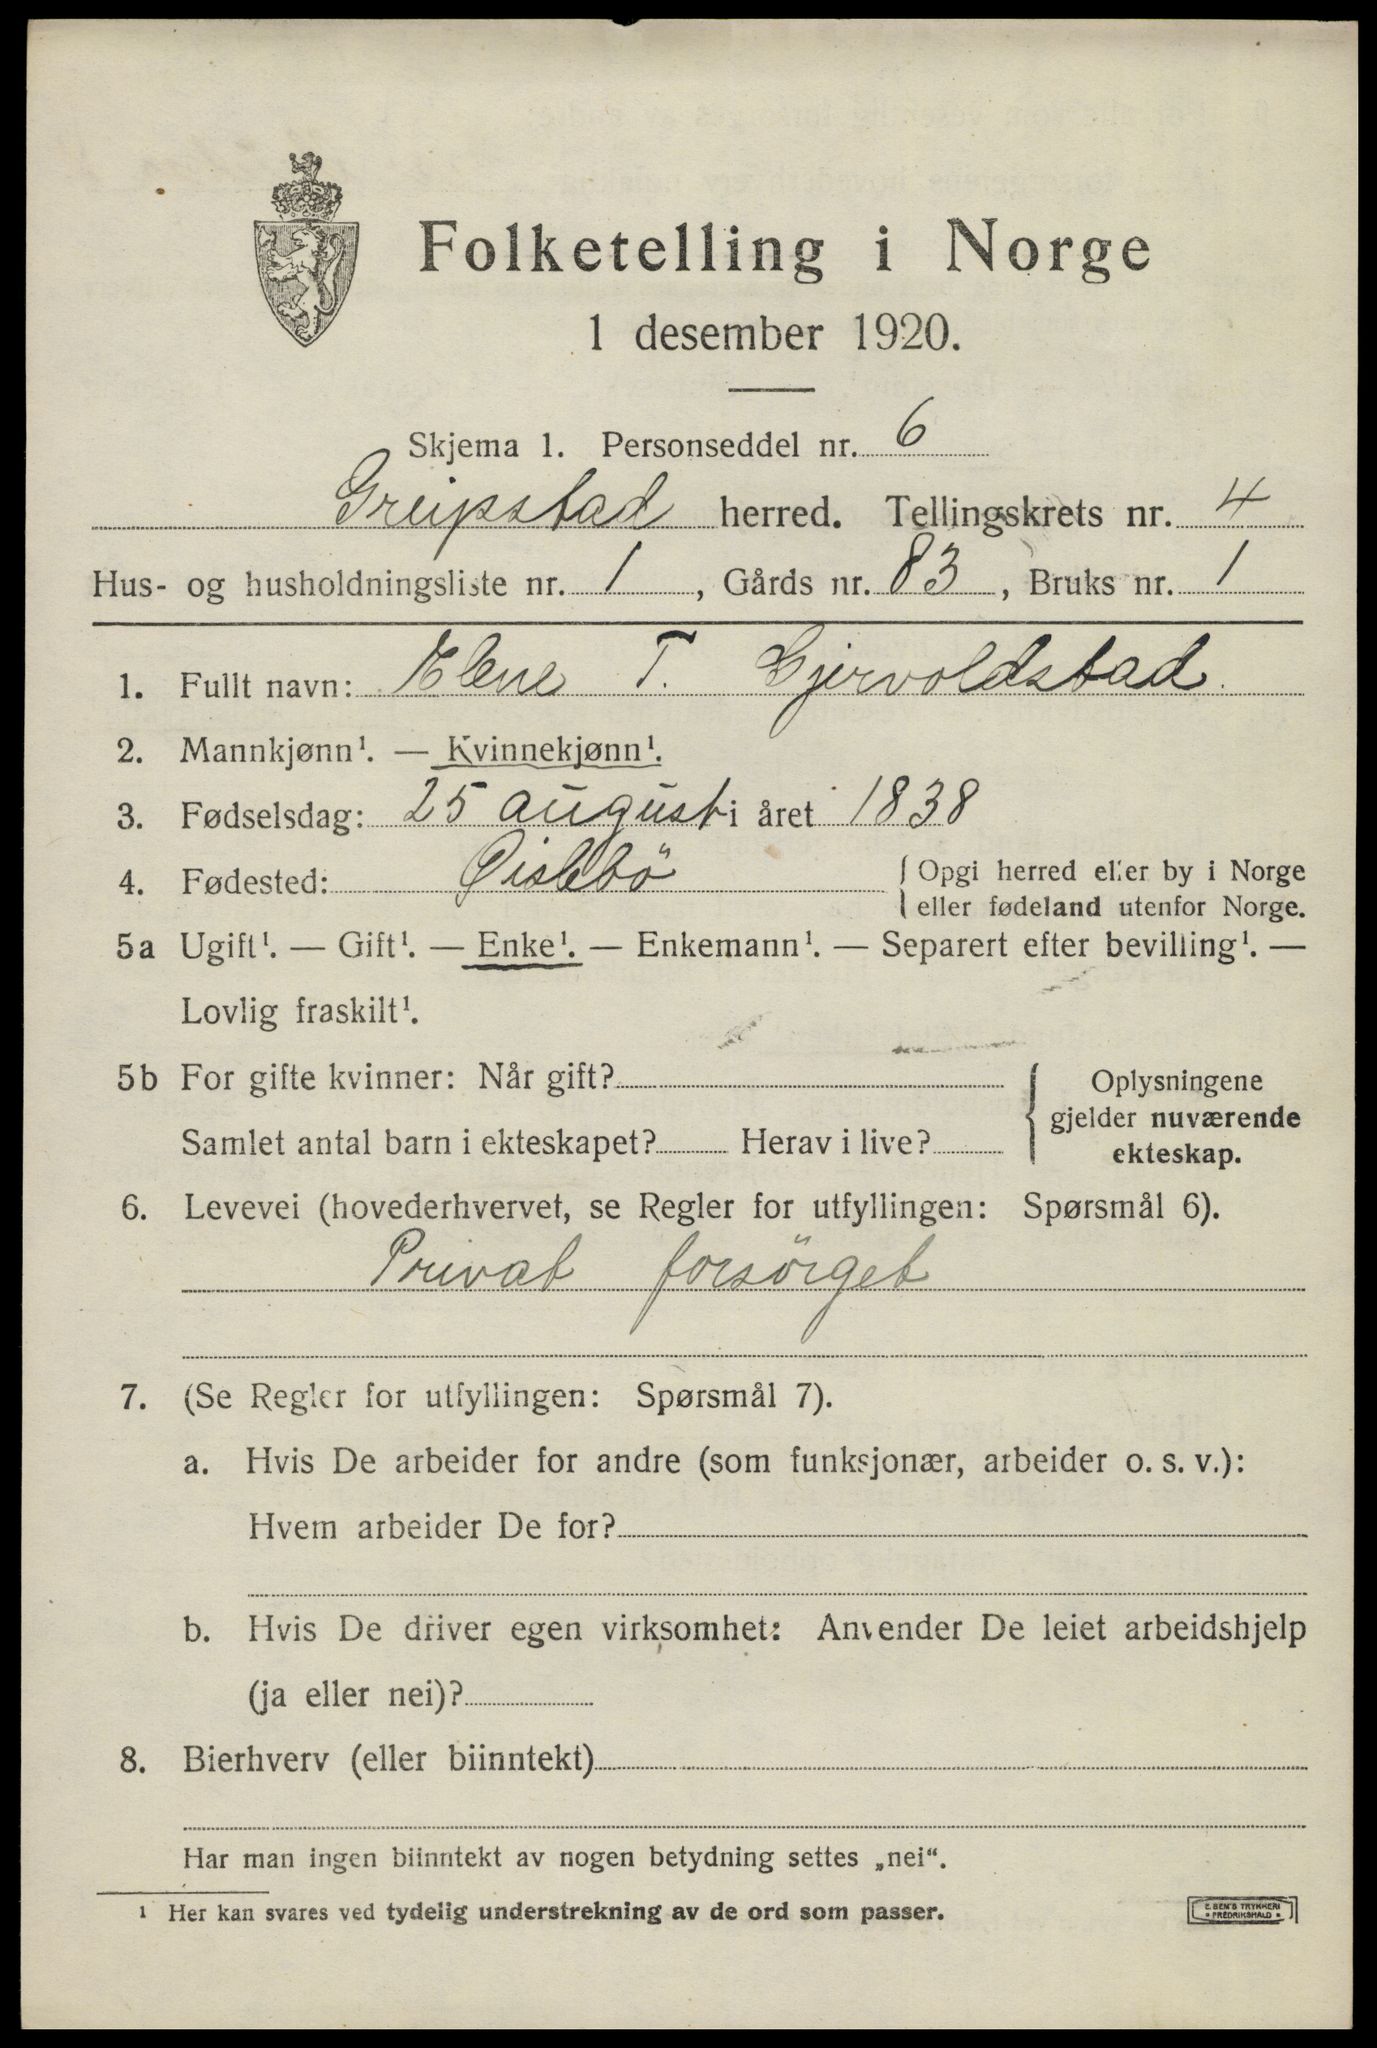 Folketelling i Norge
1 desember 1920.
Skjema 1. Personseddel nr. 6
Greipstad herred. Tellingskrets nr. 4
Hus- og husholdningsliste nr. 1, Gårds nr. 83, Bruks nr. 1
1. Fullt navn: Elene T. Gjervoldstad.
2. Mannkjønn¹. — Kvinnekjønn¹.
3. Fødselsdag: 25 august i året 1838
4. Fødested: Øislebö { Opgi herred eller by i Norge
eller fødeland utenfor Norge.
5a Ugift¹. — Gift¹. — Enke¹. — Enkemann¹. — Separert efter bevilling¹. —
Lovlig fraskilt¹.
5b For gifte kvinner: Når gift? { Oplysningene
gjelder nuværende
Samlet antal barn i ekteskapet? Herav i live?
ekteskap.
6. Levevei (hovederhvervet, se Regler for utfyllingen: Spørsmål 6).
Privat forsörget
7. (Se Regler for utfyllingen: Spørsmål 7).
a. Hvis De arbeider for andre (som funksjonær, arbeider o. s. v.):
Hvem arbeider De for?
b. Hvis De driver egen virksomhet: Anvender De leiet arbeidshjelp
(ja eller nei)?
8. Bierhverv (eller biinntekt)
Har man ingen biinntekt av nogen betydning settes „nei“.
¹ Her kan svares ved tydelig understrekning av de ord som passer.
E. SEM'S TRYKKERI
• FREDRIKSHALD •